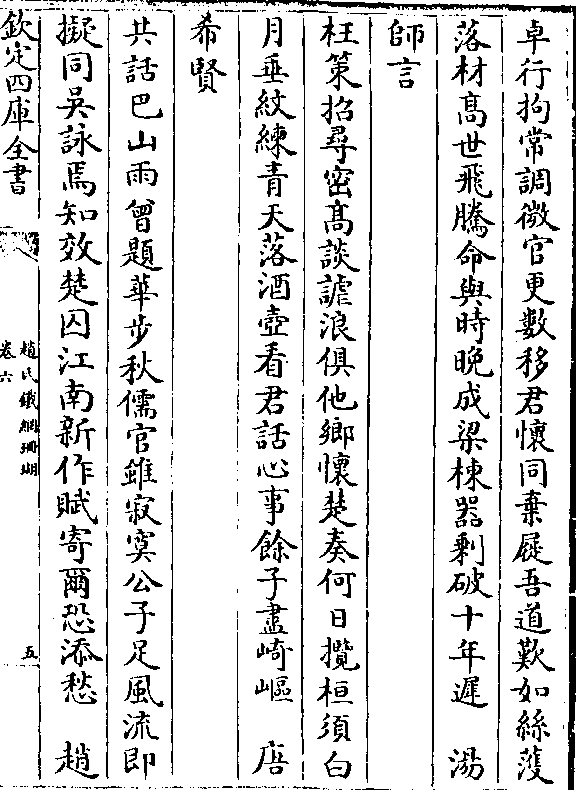 卓行拘常調微官更數移君懷同棄屣吾道歎如絲濩
落材髙世飛騰命與時晩成梁棟器剩破十年遲　湯
師言
枉策招尋密髙談謔浪俱他鄉懷楚奏何日攬桓須白
月垂紋練青天落酒壺看君話心事餘子盡崎嶇　唐
希賢
共話巴山雨曾題華步秋儒官雖寂寞公子足風流即
擬同吳詠焉知效楚囚江南新作賦寄爾恐添愁　趙
欽定四庫全書
趙氏鐵網珊瑚
卷六
五